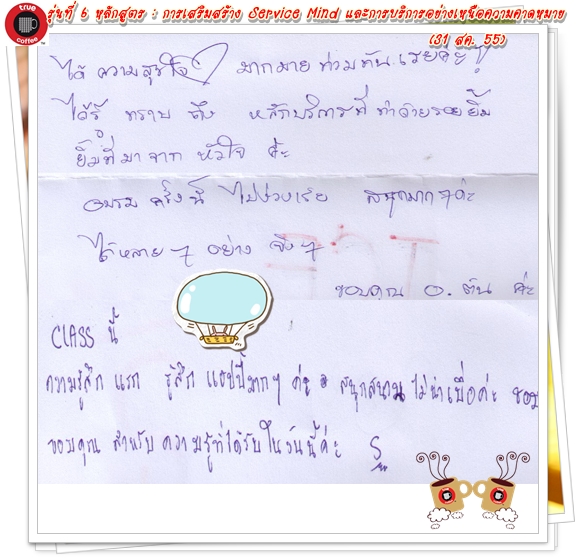 true coffee
รุ่นที่ 6 หลักสูตร : การเสริมสร้าง Service Mind และการบริการอย่างเหนือความคาดหมาย
(31 สค. 55)
ได้ ความสุขใจ มากมาย ท่วมท้น เลยค่ะ!
ได้รู้ ทราบ ถึง หลักบริการที่ ทำด้วยรอยยิ้ม
ยิ้มที่มาจาก หัวใจ ค่ะ
อบรม ครั้งนี้ ไม่ง่วงเลย สนุกมาก ๆ ค่ะ
ได้หลาย ๆ อย่าง จริง ๆ
ขอบคุณ อ. ต้น ค่ะ
CLASS นี้
ความรู้สึก แรก รู้สึก แฮปปี้มากๆ ค่ะ สนุกสนาน ไม่น่าเบื่อค่ะ ขอบ
ขอบคุณ สำหรับ ความรู้ที่ได้รับในวันนี้ค่ะ